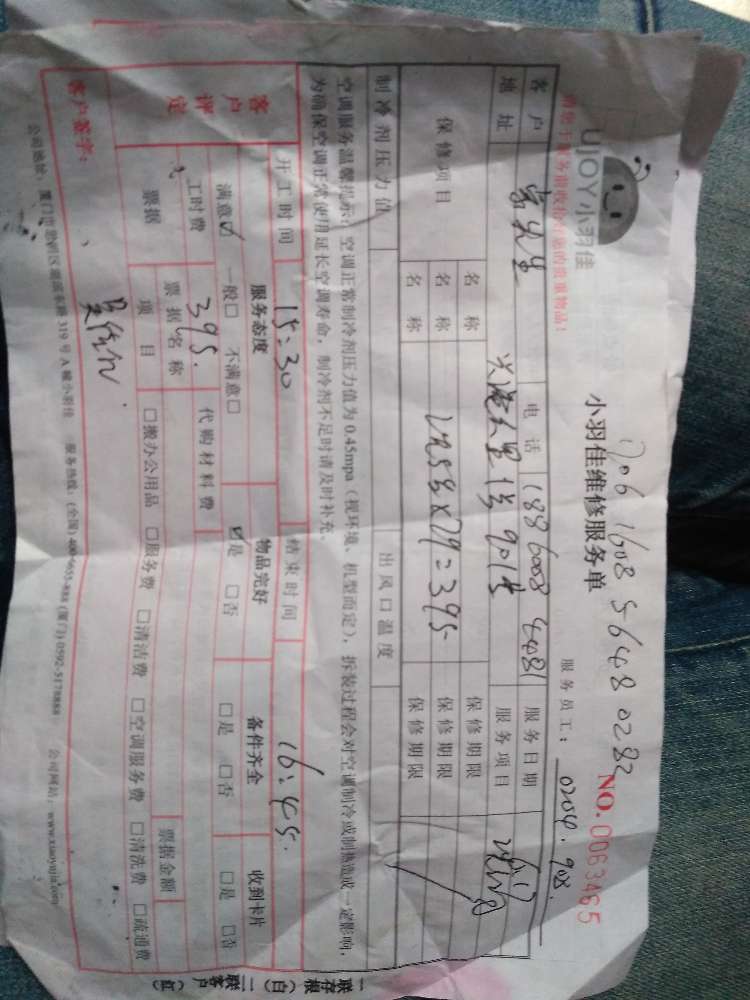 1706 1608 5648 0282
UJOY小羽佳
小羽佳维修服务单
NO.0063465
请您于服务前收拾好您的贵重物品!
服务员工: 0204.908.
客户 电话 188 6008 4481 服务日期
地址 901 服务项目
保修项目 名称 保修期限
名称 5×79=395 保修期限
名称 保修期限
制冷剂压力值 出风口温度
空调服务温馨提示:空调正常制冷剂压力值为0.45mpa(视环境、机型而定),拆装过程会对空调制冷或制热造成一定影响,
为确保空调正常使用延长空调寿命,制冷剂不足时请及时补充。
开工时间 15:30 结束时间 16:45.
客户评定 服务态度 物品完好 备件齐全 收到卡片
满意☑ 一般□ 不满意□ ☑是 □否 □是 □否 □是 □否
工时费 395. 代购材料费
票据 票据名称 票据金额
项目 □搬办公用品 □服务费 □清洁费 □空调服务费 □清洗费 □疏通费
客户签字:
公司地址:厦门市思明区 319号A幢小羽佳 服务热线:(全国)400-6655-888 (厦门)0592-5178888 公司网站:www.xiaoyujia.com
一联存根(白) 二联客户(红)